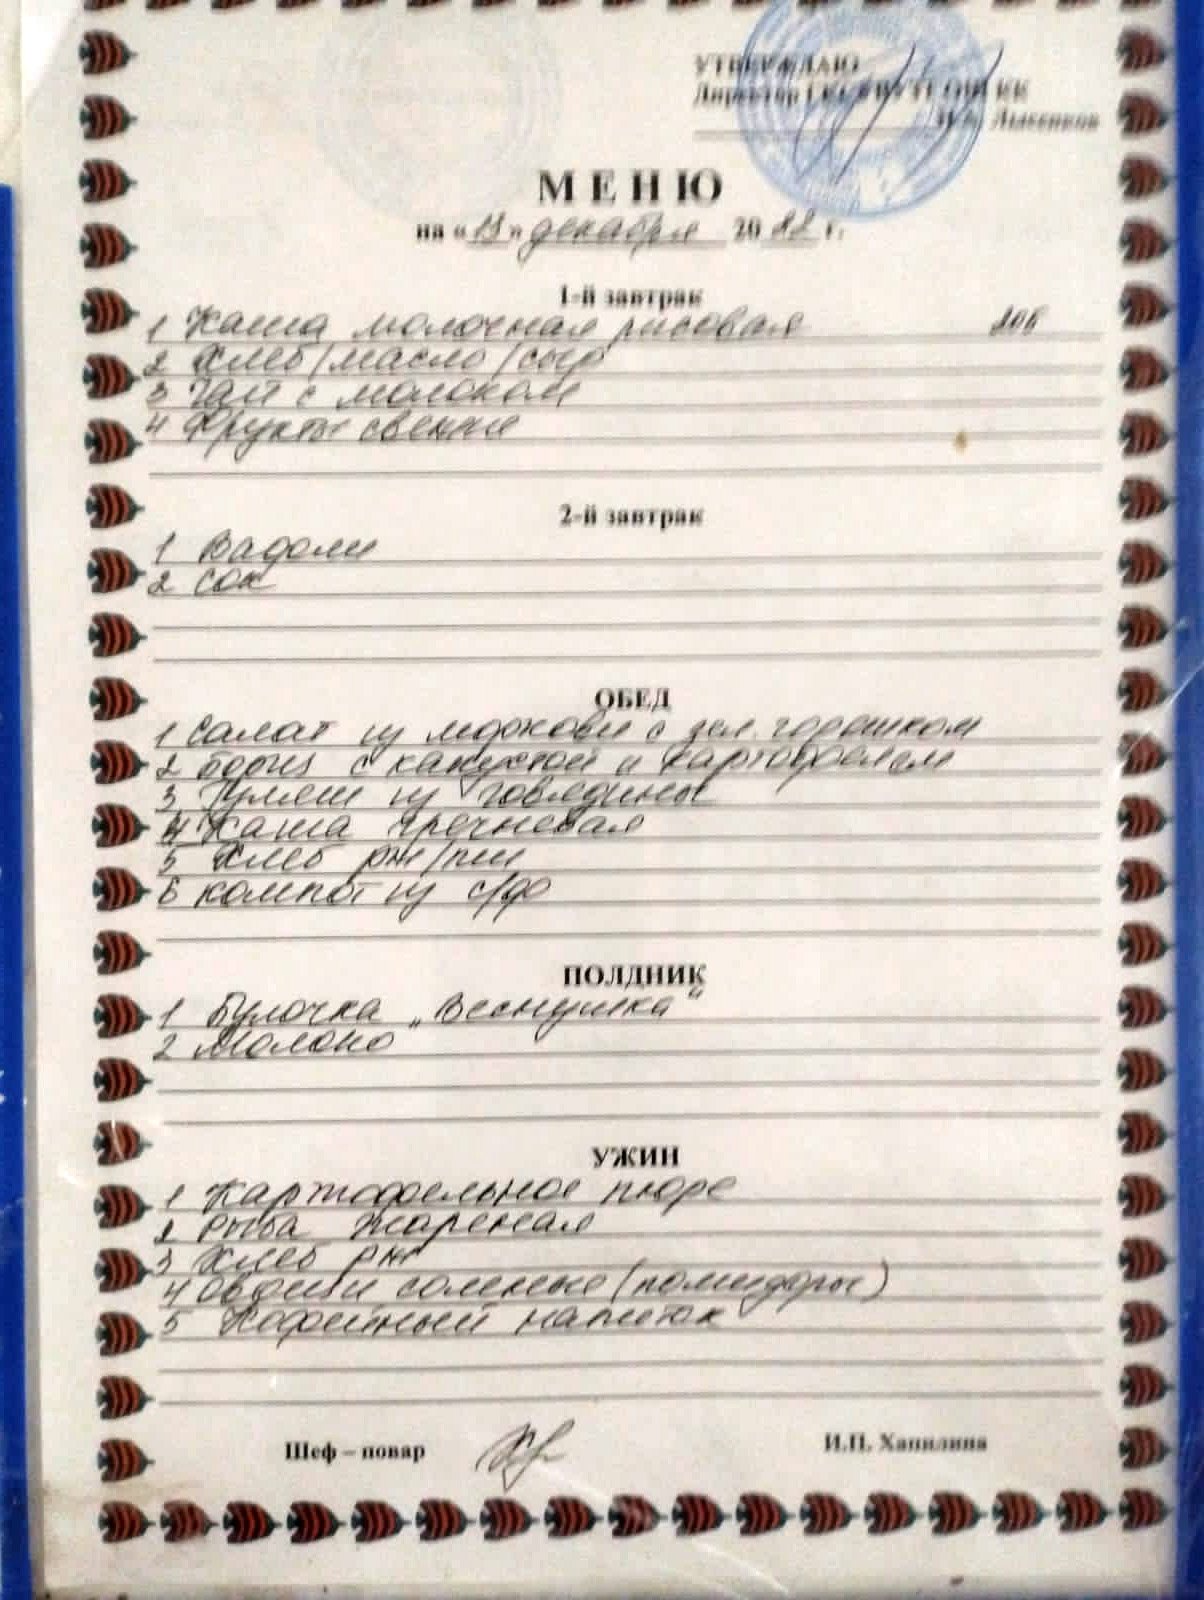 УТВЕРЖДАЮ
Директор
Лысенков
МЕНЮ
на «13» декабря 2022 г.
1-й завтрак
1 Каша молочная рисовая 206
2 Хлеб/масло/сыр
3 Чай с молоком
4 Фрукты свежие
2-й завтрак
1 Вафли
2 Сок
ОБЕД
1 Салат из моркови с зел. горошком
2 Борщ с капустой и картофелем
3 Гуляш из говядины
4 Каша гречневая
5 Хлеб рж/пш
6 Компот из с/ф
ПОЛДНИК
1 Булочка „Веснушка“
2 Молоко
УЖИН
1 Картофельное пюре
2 Рыба жареная
3 Хлеб рж
4 Овощи соленые (помидоры)
5 Кофейный напиток
Шеф – повар И.П. Хапилина